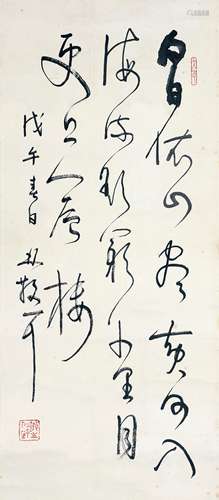 白日依山盡黃河入
海流欲窮千里目
更上一層樓
戊午春日 林散耳